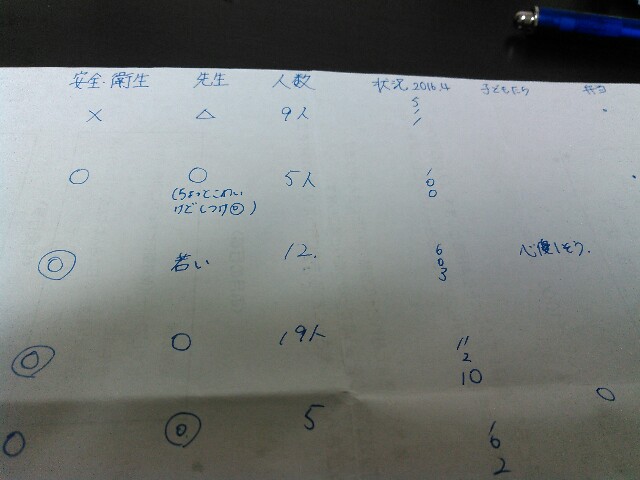 安全・衛生 先生 人数 状況 2016.4 子どもたち 弁当
× △ 9人 5
1
1
○ ○ 5人 1
(ちょっとこわい 0
けどしつけ◎) 0
◎ 若い 12. 6 心優しそう.
0
3
◎ ○ 19人 11
2
10 ○
○ ◎ 5 1
6
2